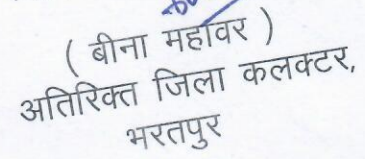 ( बीना महावर )
अतिरिक्त जिला कलक्टर,
भरतपुर